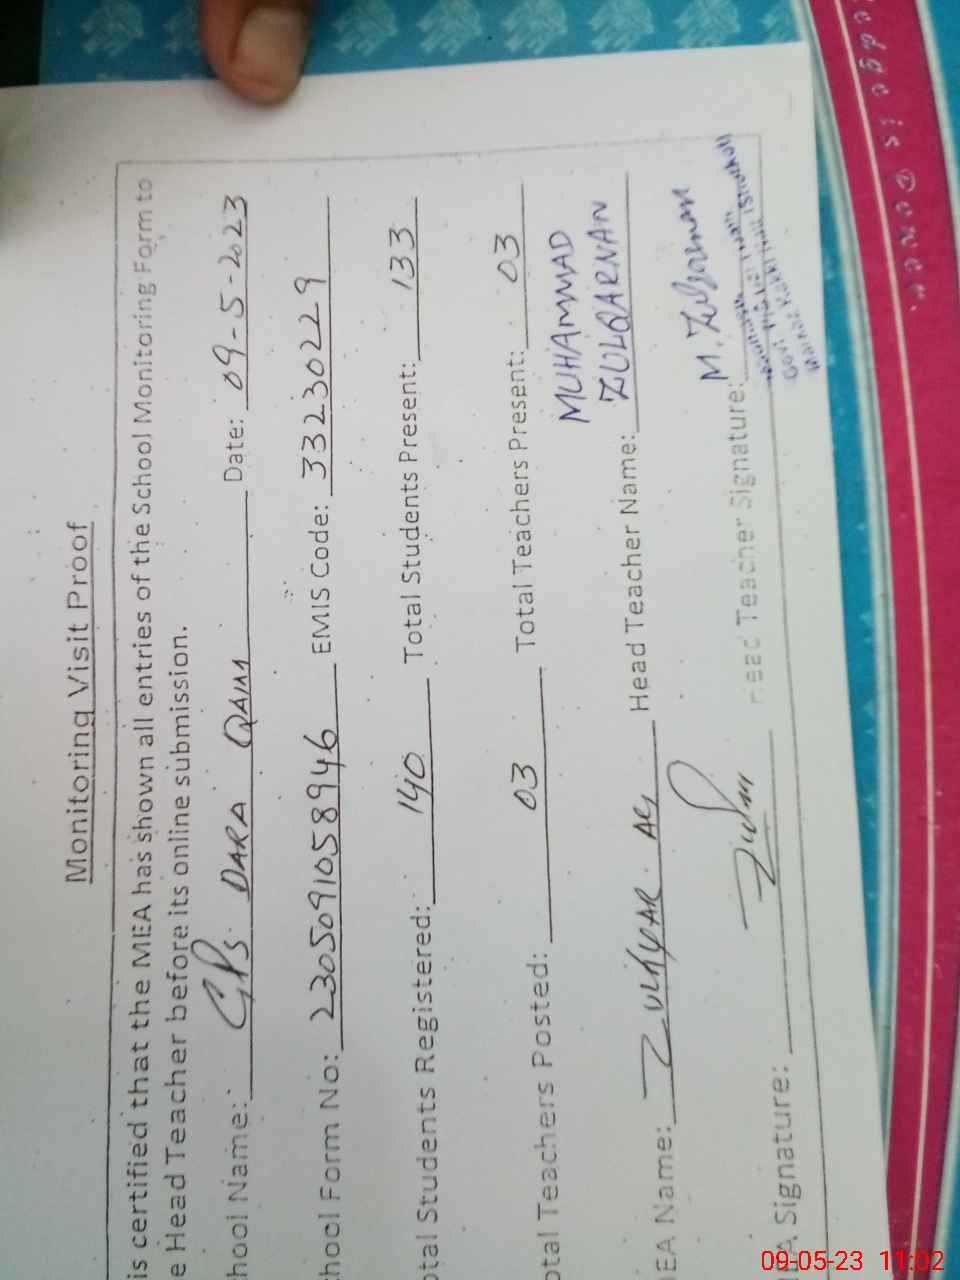 Monitoring Visit Proof
is certified that the MEA has shown all entries of the School Monitoring Form to
e Head Teacher before its online submission.
hool Name: GPS. DARA QAIM Date: 09-5-2023
hool Form No: 2305091058946 EMIS Code: 33230229
otal Students Registered: 140 Total Students Present: 133
otal Teachers Posted: 03 Total Teachers Present: 03
MEA Name: ZULFIQAR Head Teacher Name: MUHAMMAD ZULQARNAN
EA Signature: Head Teacher Signature: M. Zulqarnan
09-05-23 11:02